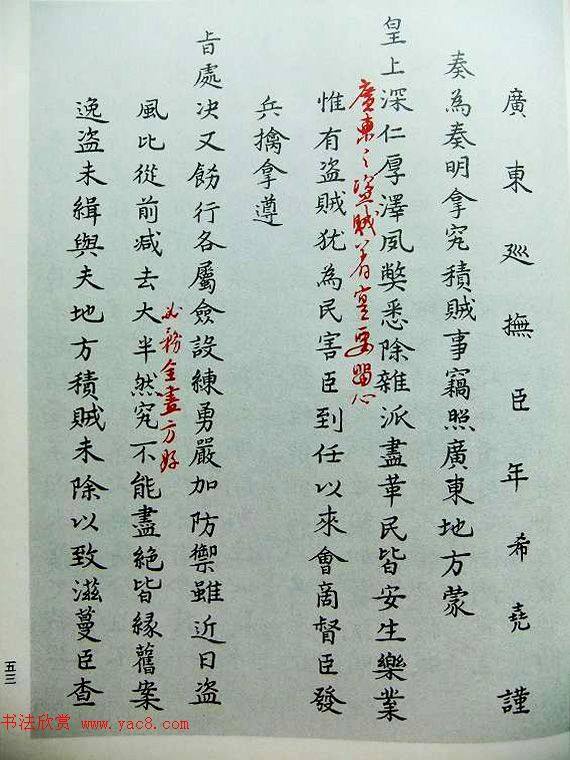 廣東巡撫臣年希堯謹
奏為奏明拿究積賊事竊照廣東地方蒙
皇上深仁厚澤夙獘悉除雜派盡革民皆安生樂業
廣東之盜賊著實要留心
惟有盗賊犹為民害臣到任以來會商督臣發
兵擒拿遵
旨處决又飭行各屬僉設練勇嚴加防禦雖近日盗
必務全盡方好
風比從前减去大半然究不能盡絕皆緣舊案
逸盗未緝與夫地方積賊未除以致滋蔓臣查
五三
书法欣赏 www.yac8.com